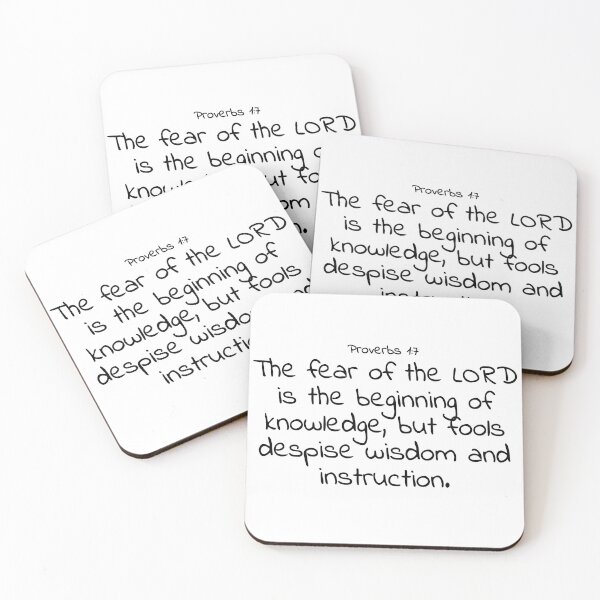 Proverbs 17
The fear of the LORD
is the beginning
but
Proverbs 17
The fear of the LORD
is the beginning of
knowledge, but fools
despise wisdom and
Proverbs 17
The fear of the LORD
is the beginning of
knowledge, but fools
despise
Proverbs 17
The fear of the LORD
is the beginning of
knowledge, but fools
despise wisdom and
instruction.